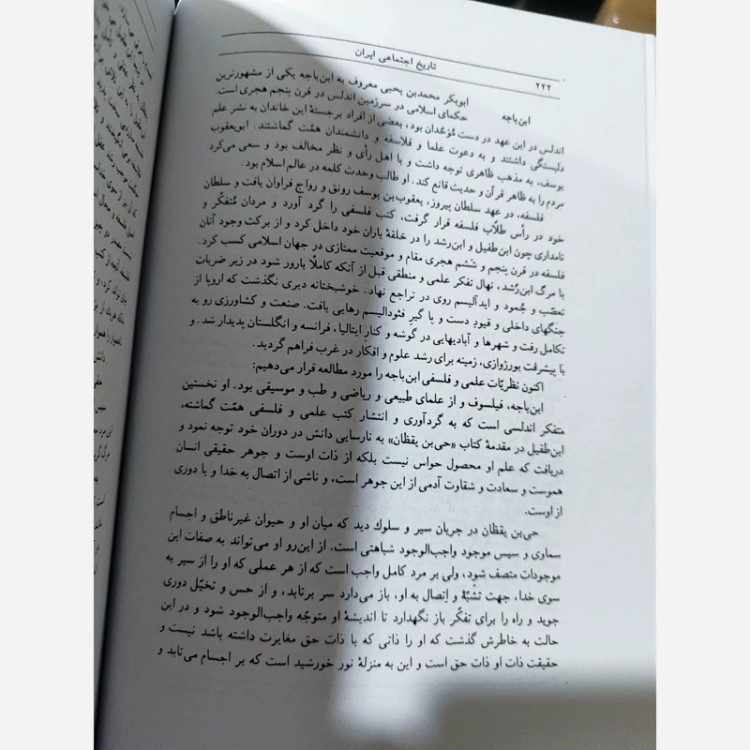 تاریخ اجتماعی ایران
۲۲۲
ابن‌باجه ابوبکر محمدبن یحیی معروف به ابن‌باجه یکی از مشهورترین
حکمای اسلامی در سرزمین اندلس در قرن پنجم هجری است.
اندلس در این عهد در دست مُوَحّدان بود، بعضی از افراد برجستهٔ این خاندان به نشر علم
دلبستگی داشتند و به دعوت علما و فلاسفه و دانشمندان همّت گماشتند. ابویعقوب
یوسف، به مذهب ظاهری توجه داشت و با اهل رأی و نظر مخالف بود و سعی می‌کرد
مردم را به ظاهر قرآن و حدیث قانع کند. او طالب وحدت کلمه در عالم اسلام بود.
فلسفه، در عهد سلطان پیروز، یعقوب‌بن یوسف رونق و رواج فراوان یافت و سلطان
خود در رأس طلّاب فلسفه قرار گرفت، کتب فلسفی را گرد آورد و مردان مُتفکّر و
نامداری چون ابن‌طفیل و ابن‌رشد را در حلقهٔ یاران خود داخل کرد و از برکت وجود آنان
فلسفه در قرن پنجم و شُشم هجری مقام و موقعیت ممتازی در جهان اسلامی کسب کرد.
با مرگ ابن‌رُشد، نهال تفکر علمی و منطقی قبل از آنکه کاملاً بارور شود در زیر ضربات
تعصّب و جُمود و ایدآلیسم روی در تراجع نهاد. خوشبختانه دیری نگذشت که اروپا از
جنگهای داخلی و قیودِ دست و پا گیرِ فئودالیسم رهایی یافت. صنعت و کشاورزی رو به
تکامل رفت و شهرها و آبادیهایی در گوشه و کنارِ ایتالیا، فرانسه و انگلستان پدیدار شد. و
با پیشرفت بورژوازی، زمینه برای رشد علوم و افکار در غرب فراهم گردید.
اکنون نظریّات علمی و فلسفی ابن‌باجه را مورد مطالعه قرار می‌دهیم:
ابن‌باجه، فیلسوف و از علمای طبیعی و ریاضی و طب و موسیقی بود. او نخستین
متفکر اندلسی است که به گردآوری و انتشار کتب علمی و فلسفی همّت گماشته،
ابن‌طفیل در مقدمهٔ کتاب «حی‌بن یقظان» به نارسایی دانش در دوران خود توجه نمود و
دریافت که علم او محصول حواس نیست بلکه از ذات اوست و جوهر حقیقی انسان
هموست و سعادت و شقاوت آدمی از این جوهر است، و ناشی از اتصال به خدا و یا دوری
از اوست.
حی‌بن یقظان در جریان سیر و سلوك دید که میان او و حیوان غیرناطق و اجسام
سماوی و سپس موجود واجب‌الوجود شباهتی است. از این‌رو او می‌تواند به صفات این
موجودات متصف شود، ولی بر مرد کامل واجب است که از هر عملی که او را از سیر به
سوی خدا، جهت تشبّه و اِتصال به او، باز می‌دارد سر برتابد، و از حس و تخیّل دوری
جوید و راه را برای تفکّر باز نگهدارد تا اندیشهٔ او متوجّه واجب‌الوجود شود و در این
حالت به خاطرش گذشت که او را ذاتی که با ذات حق مغایرت داشته باشد نیست و
حقیقت ذات او ذات حق است و این به منزلهٔ نور خورشید است که بر اجسام می‌تابد و